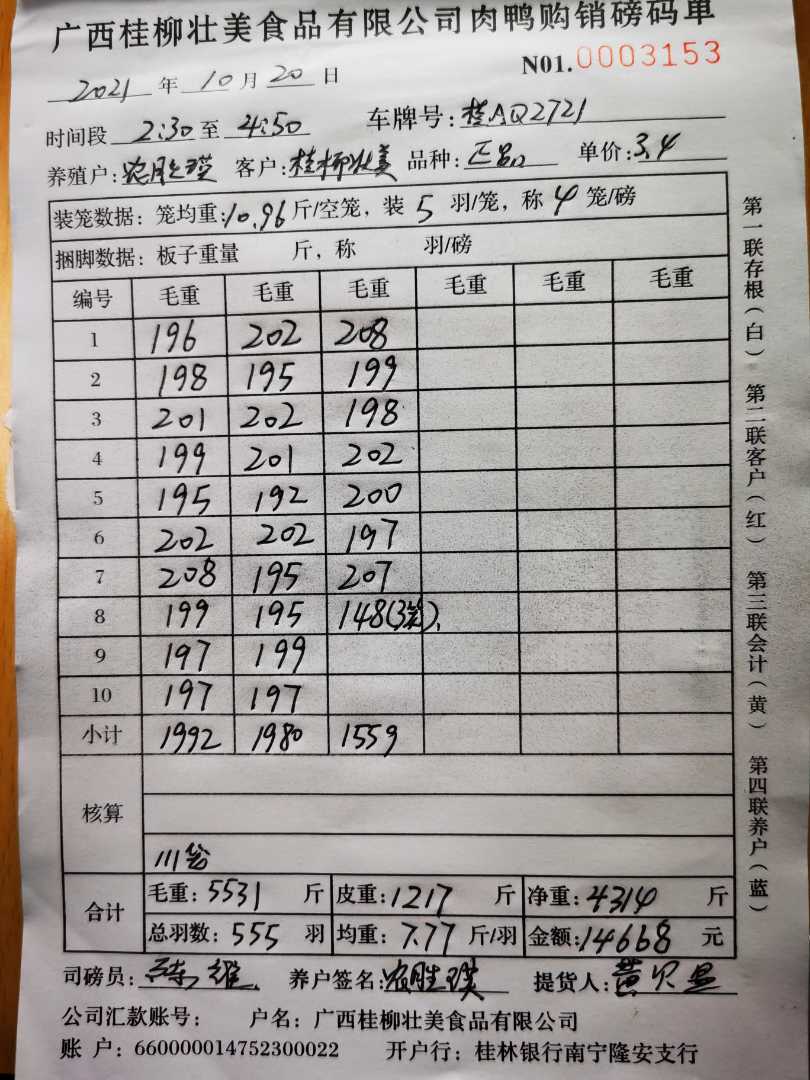 广西桂柳壮美食品有限公司肉鸭购销磅码单
2021 年 10 月 20 日 N01.0003153
时间段 2:30 至 4:50 车牌号:桂AQ2721
养殖户:农胜瑛 客户:桂柳壮美 品种:正品 单价:3.4
装笼数据:笼均重:10.96斤/空笼,装 5 羽/笼,称 4 笼/磅
捆脚数据:板子重量 斤,称 羽/磅
编号 毛重 毛重 毛重 毛重 毛重 毛重
1 196 202 208
2 198 195 199
3 201 202 198
4 199 201 202
5 195 192 200
6 202 202 197
7 208 195 207
8 199 195 148(3笼)、
9 197 199
10 197 197
小计 1992 1980 1559
核算
111笼
合计
毛重:5531 斤 皮重:1217 斤 净重:4314 斤
总羽数:555 羽 均重:7.77 斤/羽 金额:14668 元
司磅员: 养户签名:农胜瑛 提货人:黄
公司汇款账号: 户名:广西桂柳壮美食品有限公司
账 户:660000014752300022 开户行:桂林银行南宁隆安支行
第一联存根(白) 第二联客户(红) 第三联会计(黄) 第四联养户(蓝)